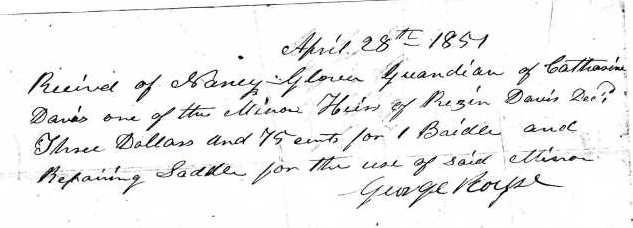 April 28th 1851
Receivd of Nancy Glover Guardian of Catharine
Davis one of the Minor Heirs of Rezin Davis Decd
Three Dollars and 75 cents for 1 Bridle and
Repairing Saddle for the use of said Minor
George Royse